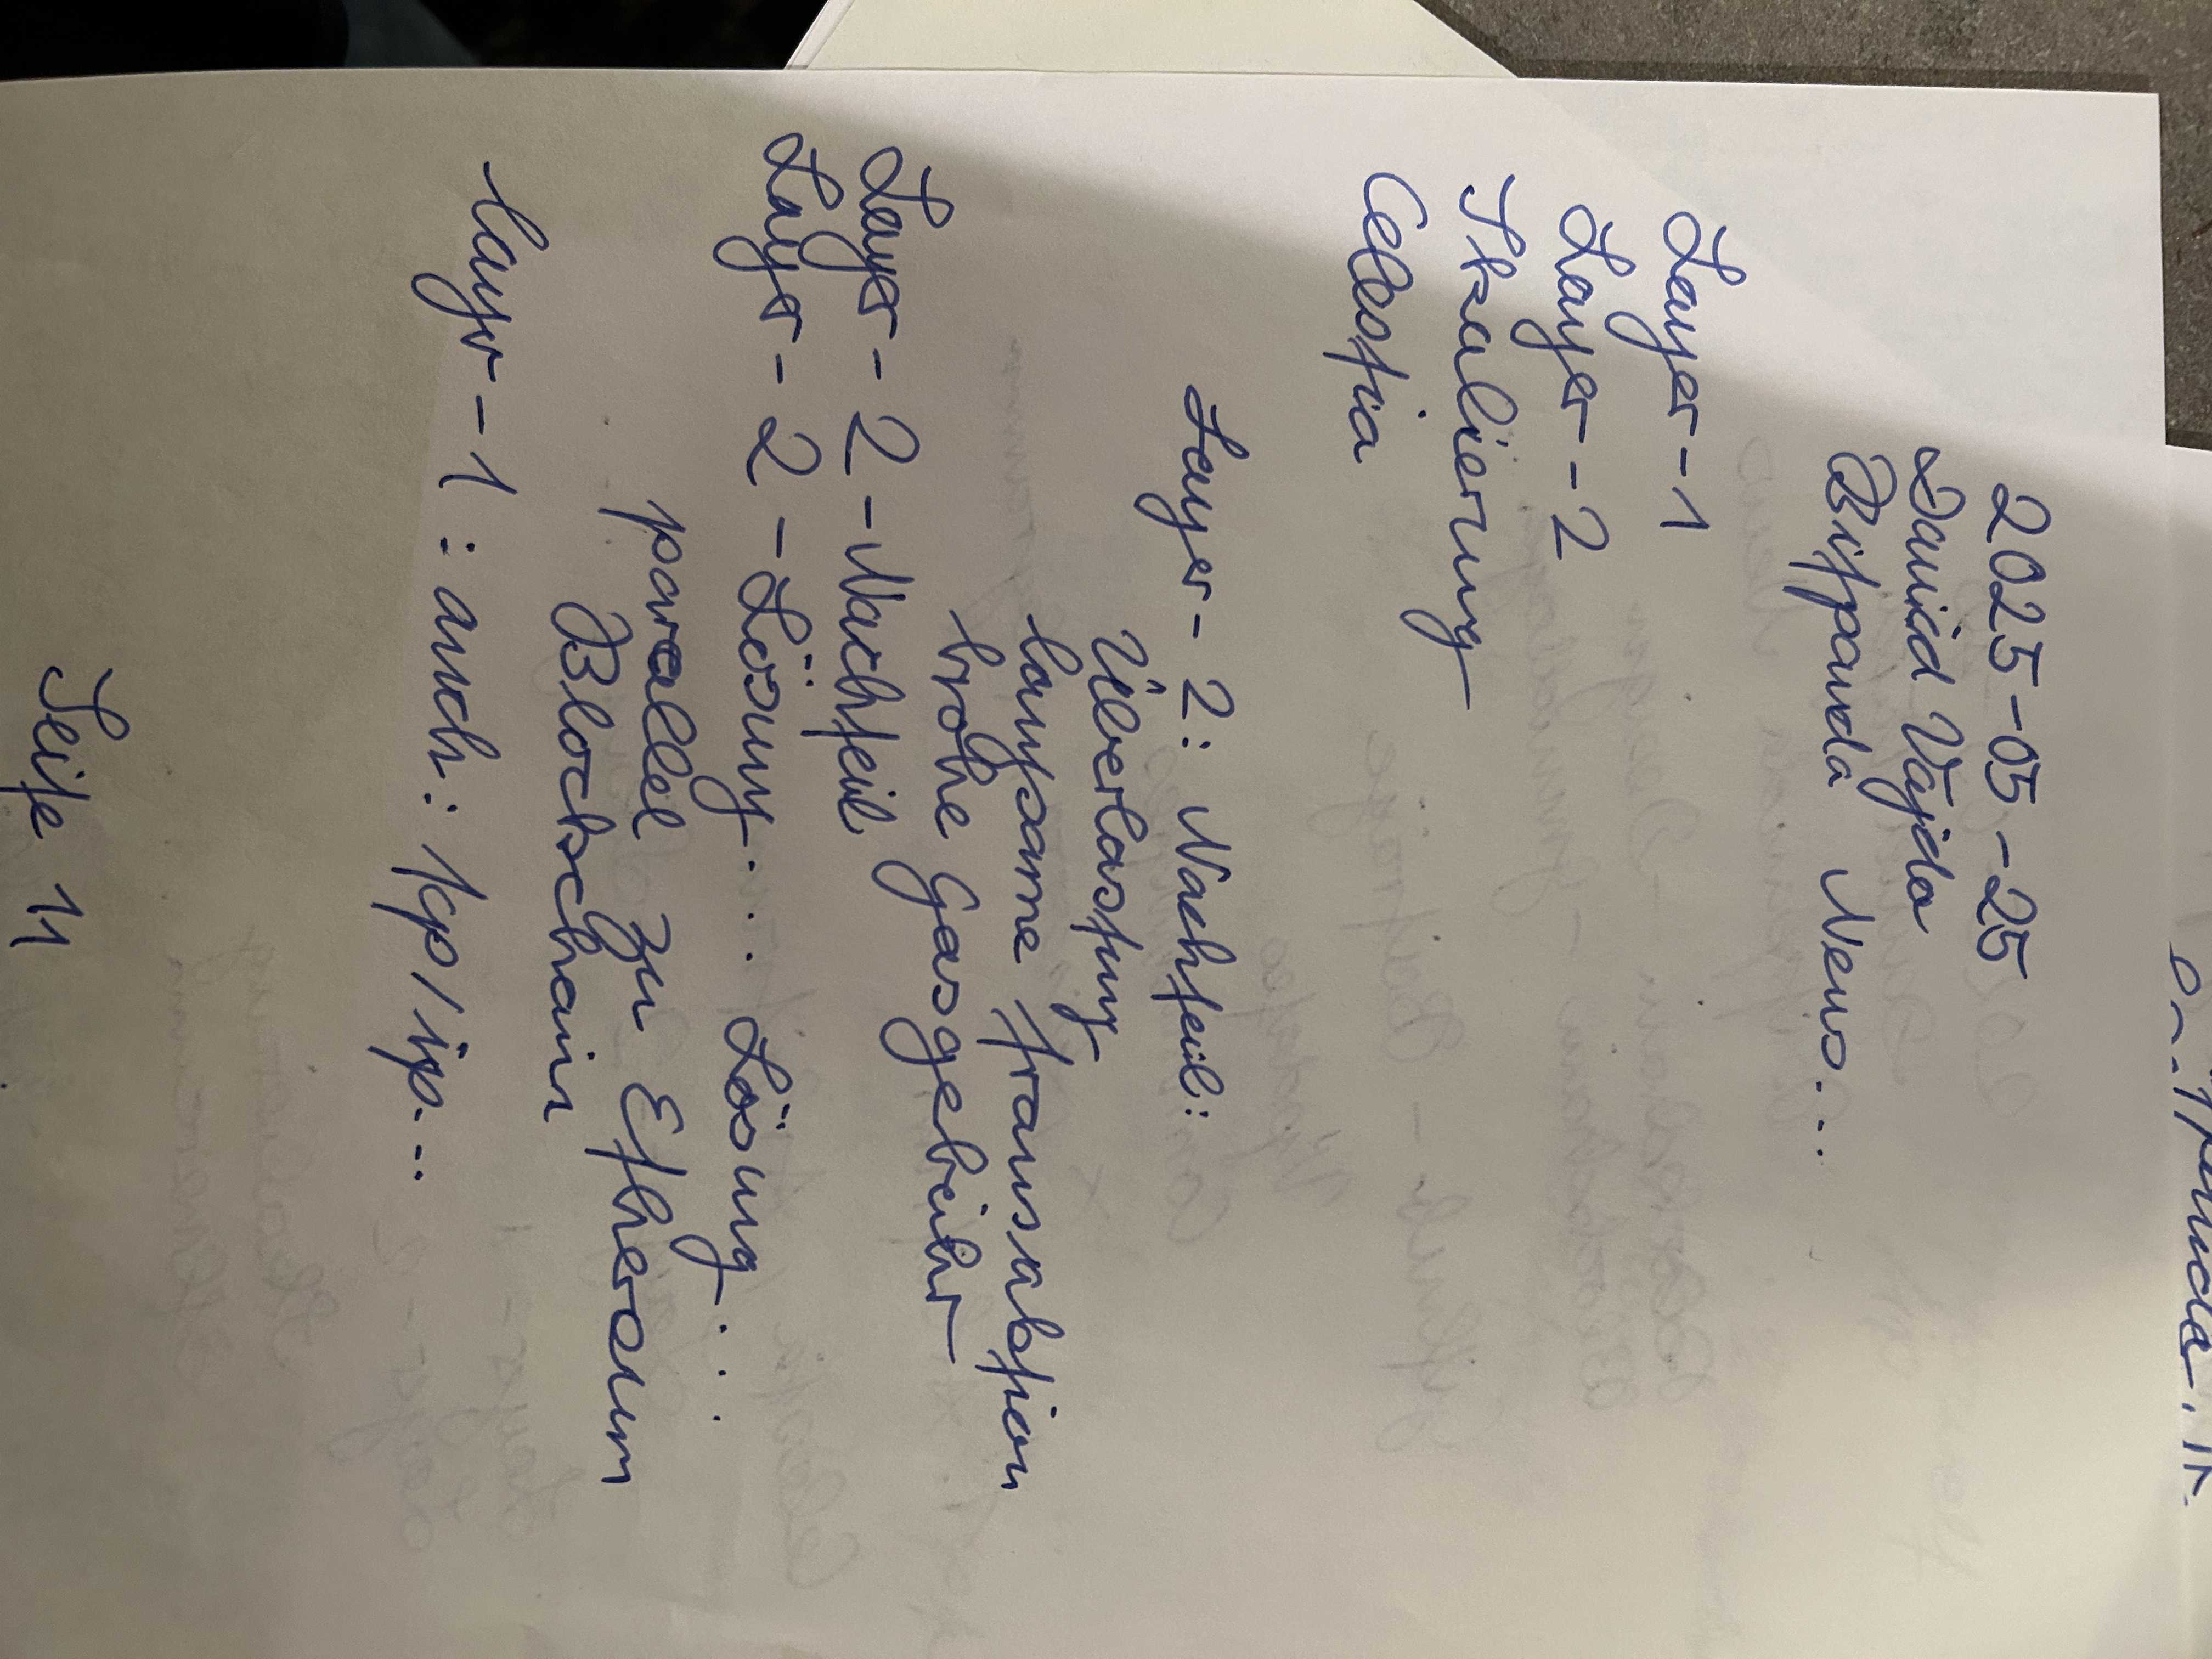 2025-05-25
David Vajda
Bitpanda News...
Layer-1
Layer-2
Skalierung
Celestia
Layer-2: Nachteil:
Überlastung
langsame Transaktion
hohe Gasgebühr
Layer-2-Nachteil
Layer-2-Lösung... Lösung...
parallel zu Ethereum
Blockchain
Layr-1: auch: tcp/ip...
Seite 11